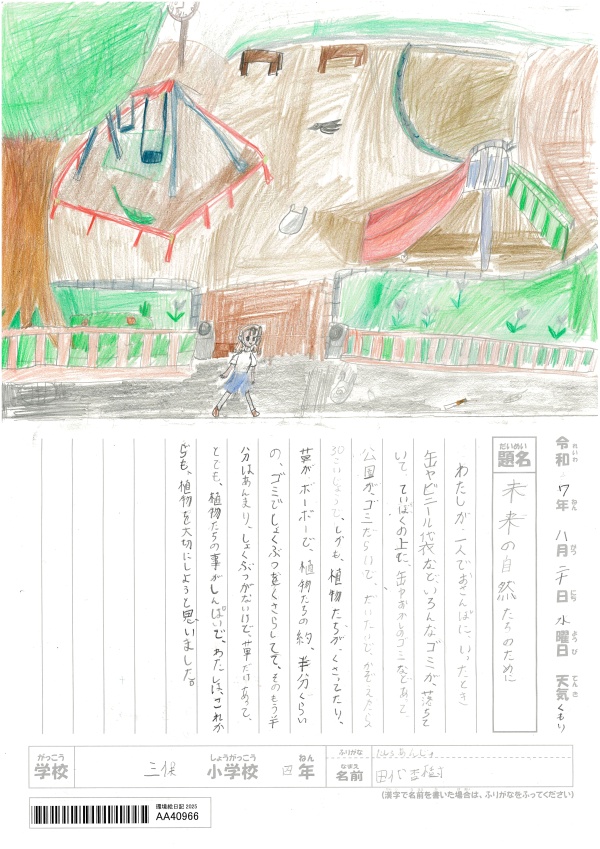 令和 7年 八月 二十日 水曜日 天気 くもり
れいわ ねん がつ にち ようび てんき
だいめい
題名 未来の自然たちのために
わたしが、一人でおさんぽに、いったとき
缶やビニール代衣など、いろんなゴミが、落ちて
いて、ていぼくの上に、缶やおかしのゴミなどあって、
公園が、ゴミだらいで、だいたいで、かぞえたら
30こいじょうで、しかも、植物たちが、くさってたり、
草が、ボーボーで、植物たちの約、半分ぐらい
の、ゴミでしょくぶつをくさらしてて、そのもう半
分はあんまり、しょくぶつがないけど、草だけあって、
とても、植物たちの事がしんぱいで、わたしは、これか
らも、植物を大切にしようと思いました。
がっこう しょうがっこう ねん ふりがな
学校 三保 小学校 四年 なまえ 名前 田代
(漢字で名前を書いた場合は、ふりがなをふってください)
環境絵日記 2025
AA40966